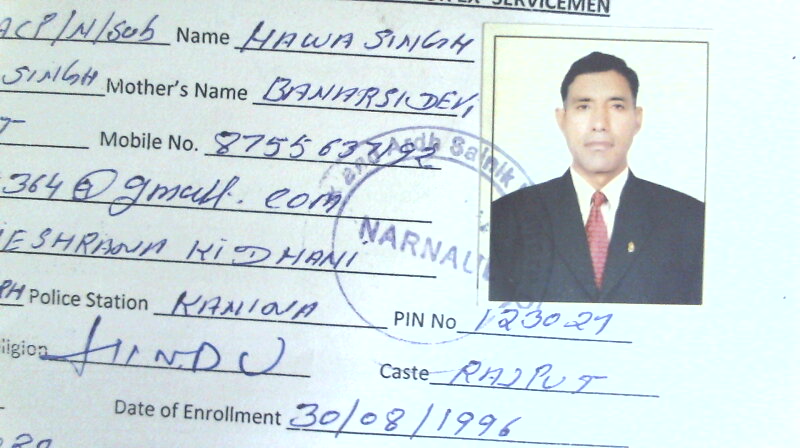 EX- SERVICEMEN
ACP/N/Sub Name HAWA SINGH
SINGH Mother's Name BANARSI DEVI
Mobile No.
364@gmail.com
KI DHANI
Police Station KANINA PIN No 123027
Religion HINDU Caste RAJPUT
Date of Enrollment 30/08/1996
and Ardh Sainik
NARNAUL